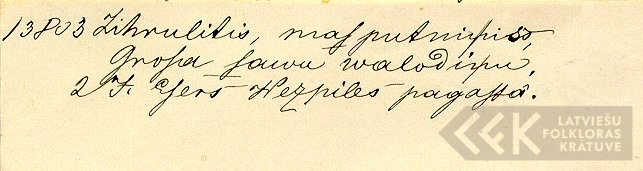 13803 Zihrulitis, mas putniņsch,
Grosa sawu walodiņu,
Wezpiles pagastâ.
LATVIEŠU
FOLKLORAS
KRĀTUVE